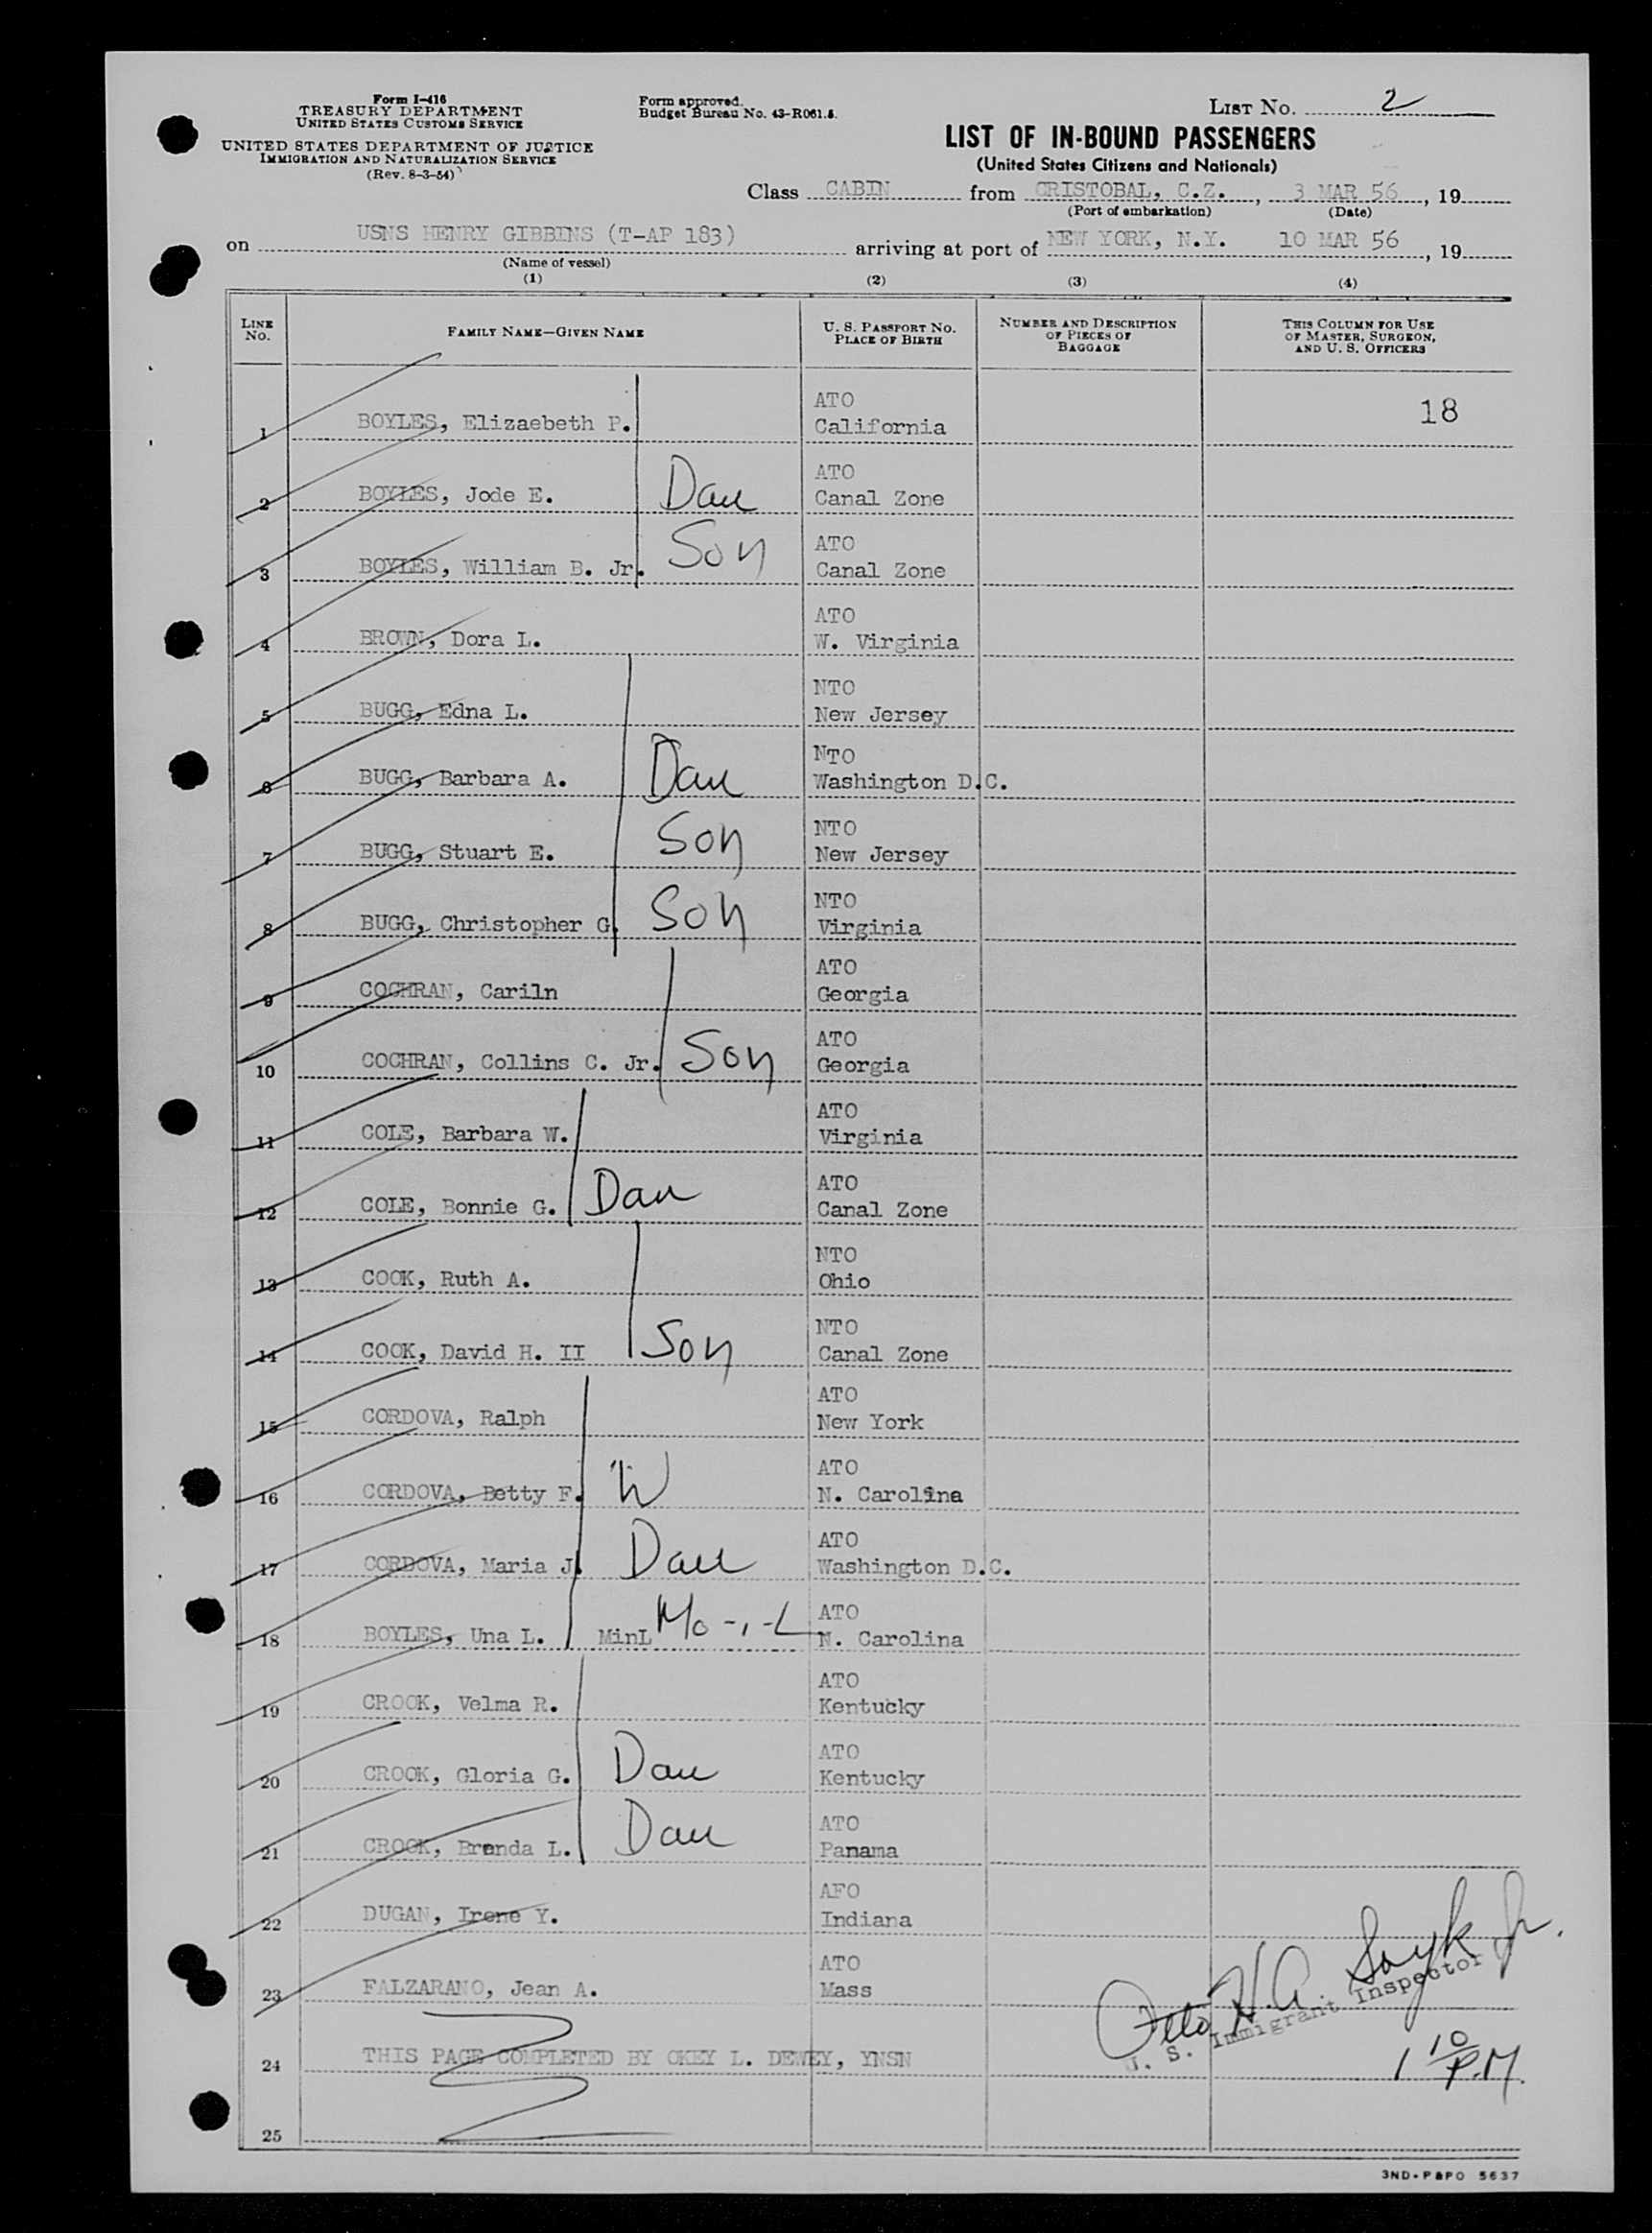 Form I-416
TREASURY DEPARTMENT
UNITED STATES CUSTOMS SERVICE
UNITED STATES DEPARTMENT OF JUSTICE
IMMIGRATION AND NATURALIZATION SERVICE
(Rev. 8-3-54)
Form approved.
Budget Bureau No. 43-R061.5.
LIST No. 2
LIST OF IN-BOUND PASSENGERS
(United States Citizens and Nationals)
Class CABIN from CRISTOBAL, C.Z., 3 MAR 56, 19
(Port of embarkation) (Date)
on USNS HENRY GIBBINS (T-AP 183) arriving at port of NEW YORK, N.Y. 10 MAR 56, 19
(Name of vessel)
(1) (2) (3) (4)
LINE No. FAMILY NAME—GIVEN NAME U. S. PASSPORT No. PLACE OF BIRTH NUMBER AND DESCRIPTION OF PIECES OF BAGGAGE THIS COLUMN FOR USE OF MASTER, SURGEON, AND U. S. OFFICERS
ATO 18
1 BOYLES, Elizaebeth P. California
ATO
2 BOYLES, Jode E. Dau Canal Zone
ATO
3 BOYLES, William B. Jr. Son Canal Zone
ATO
4 BROWN, Dora L. W. Virginia
NTO
5 BUGG, Edna L. New Jersey
NTO
6 BUGG, Barbara A. Dau Washington D.C.
NTO
7 BUGG, Stuart E. Son New Jersey
NTO
8 BUGG, Christopher G. Son Virginia
ATO
9 COCHRAN, Cariln Georgia
ATO
10 COCHRAN, Collins C. Jr. Son Georgia
ATO
11 COLE, Barbara W. Virginia
ATO
12 COLE, Bonnie G. Dau Canal Zone
NTO
13 COOK, Ruth A. Ohio
NTO
14 COOK, David H. II Son Canal Zone
ATO
15 CORDOVA, Ralph New York
ATO
16 CORDOVA, Betty F. W N. Carolina
ATO
17 CORDOVA, Maria J. Dau Washington D.C.
ATO
18 BOYLES, Una L. MinL Mo-i-L N. Carolina
ATO
19 CROOK, Velma R. Kentucky
ATO
20 CROOK, Gloria G. Dau Kentucky
ATO
21 CROOK, Brenda L. Dau Panama
AFO
22 DUGAN, Irene Y. Indiana
ATO
23 FALZARANO, Jean A. Mass
Otto H.A. Jr.
U. S. Immigrant Inspector
24 THIS PAGE COMPLETED BY OKEY L. DEWEY, YNSN
1 10 P.M.
25
3ND-P&PO 5637